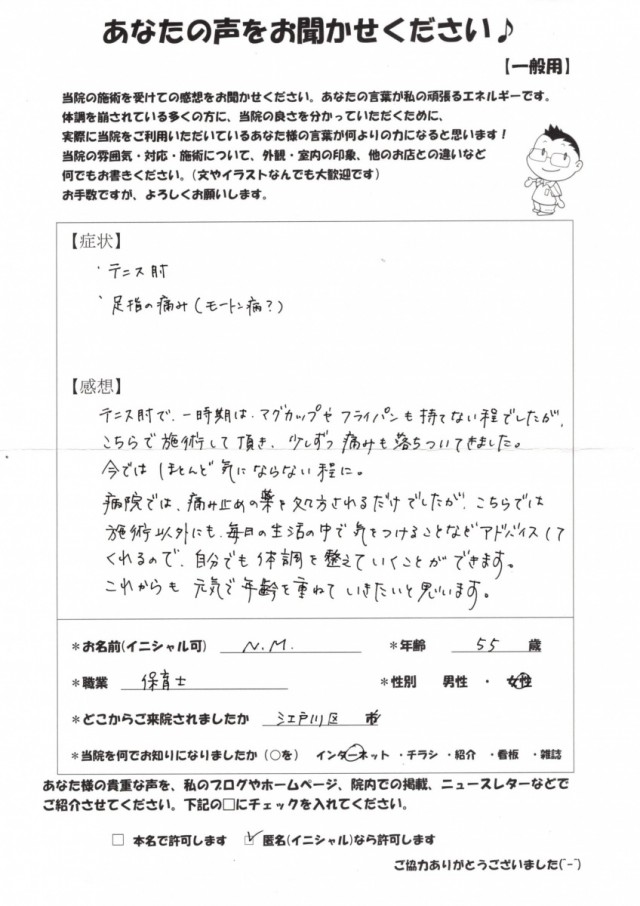 あなたの声をお聞かせください♪
【一般用】
当院の施術を受けての感想をお聞かせください。あなたの言葉が私の頑張るエネルギーです。
体調を崩されている多くの方に、当院の良さを分かっていただくために、
実際に当院をご利用いただいているあなた様の言葉が何よりの力になると思います！
当院の雰囲気・対応・施術について、外観・室内の印象、他のお店との違いなど
何でもお書きください。（文やイラストなんでも大歓迎です）
お手数ですが、よろしくお願いします。
【症状】
・テニス肘
・足指の痛み（モートン病？）
【感想】
テニス肘で、一時期は、マグカップやフライパンも持てない程でしたが、
こちらで施術して頂き、少しずつ痛みも落ちついてきました。
今ではほとんど気にならない程に。
病院では、痛み止めの薬を処方されるだけでしたが、こちらでは
施術以外にも、毎日の生活の中で気をつけることなどアドバイスして
くれるので、自分でも体調を整えていくことができます。
これからも元気で年齢を重ねていきたいと思います。
＊お名前(イニシャル可) N.M. ＊年齢 55 歳
＊職業 保育士 ＊性別 男性 ・ 女性
＊どこからご来院されましたか 江戸川区 市
＊当院を何でお知りになりましたか（○を） インターネット ・チラシ ・紹介 ・看板 ・雑誌
あなた様の貴重な声を、私のブログやホームページ、院内での掲載、ニュースレターなどで
ご紹介させてください。下記の□にチェックを入れてください。
□ 本名で許可します ☑ 匿名(イニシャル)なら許可します
ご協力ありがとうございました(^-^)